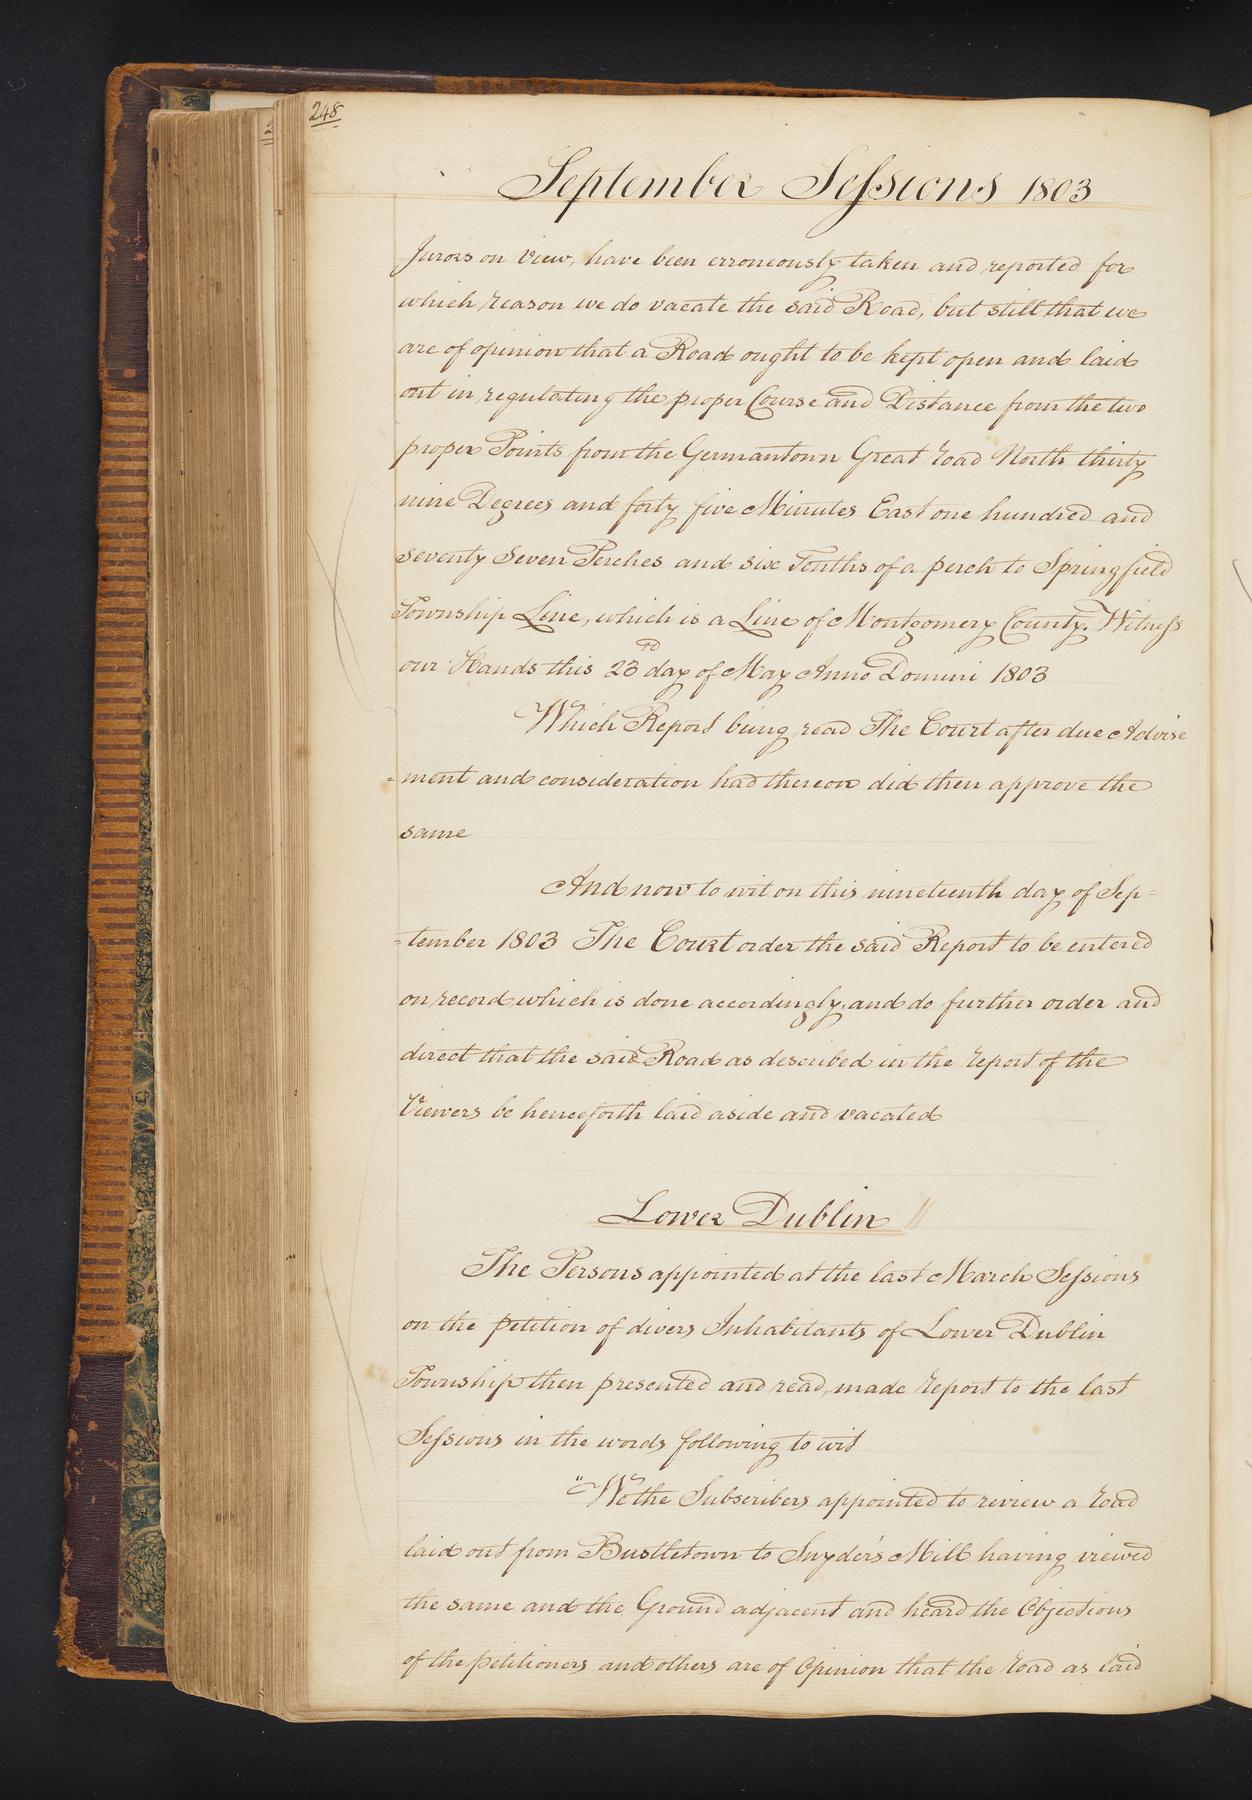 248
September Sessions 1803
Jurors on View, have been erroneously taken and reported for
which reason we do vacate the said Road, but still that we
are of opinion that a Road ought to be kept open and laid
out in regulating the proper Course and Distance from the two
proper Points from the Germantown Great road North thirty
nine Degrees and forty five Minutes East one hundred and
seventy Seven Perches and six Tenths of a perch to Springfield
Township Line, which is a Line of Montgomery County. Witness
our Hands this 23d day of May Anno Domini 1803
Which Report being read The Court after due Advise
=ment and consideration had thereon did then approve the
same
And now to wit on this nineteenth day of Sep=
=tember 1803 The Court order the said Report to be entered
on record which is done accordingly, and do further order and
direct that the said Road as described in the report of the
Viewers be henceforth laid aside and vacated
Lower Dublin
The Persons appointed at the last March Sessions
on the petition of divers Inhabitants of Lower Dublin
Township then presented and read, made report to the last
Sessions in the words following to wit
"We the Subscribers appointed to review a road
laid out from Bustletown to Snyder's Mill having viewed
the same and the Ground adjacent and heard the Objections
of the petitioners and others are of Opinion that the road as laid